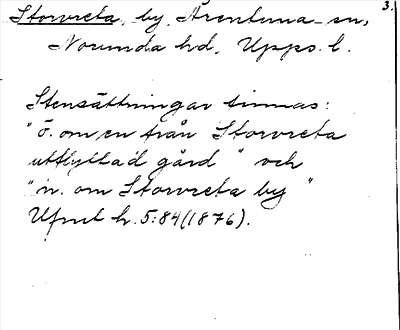 3.
Storvreta, by, Ärentuna sn,
Norunda hd, Upps. l.
Stensättningar finnas:
"ö. om en från Storvreta
utflyttad gård" och
"n. om Storvreta by"
Ufmt h. 5:84 (1876).